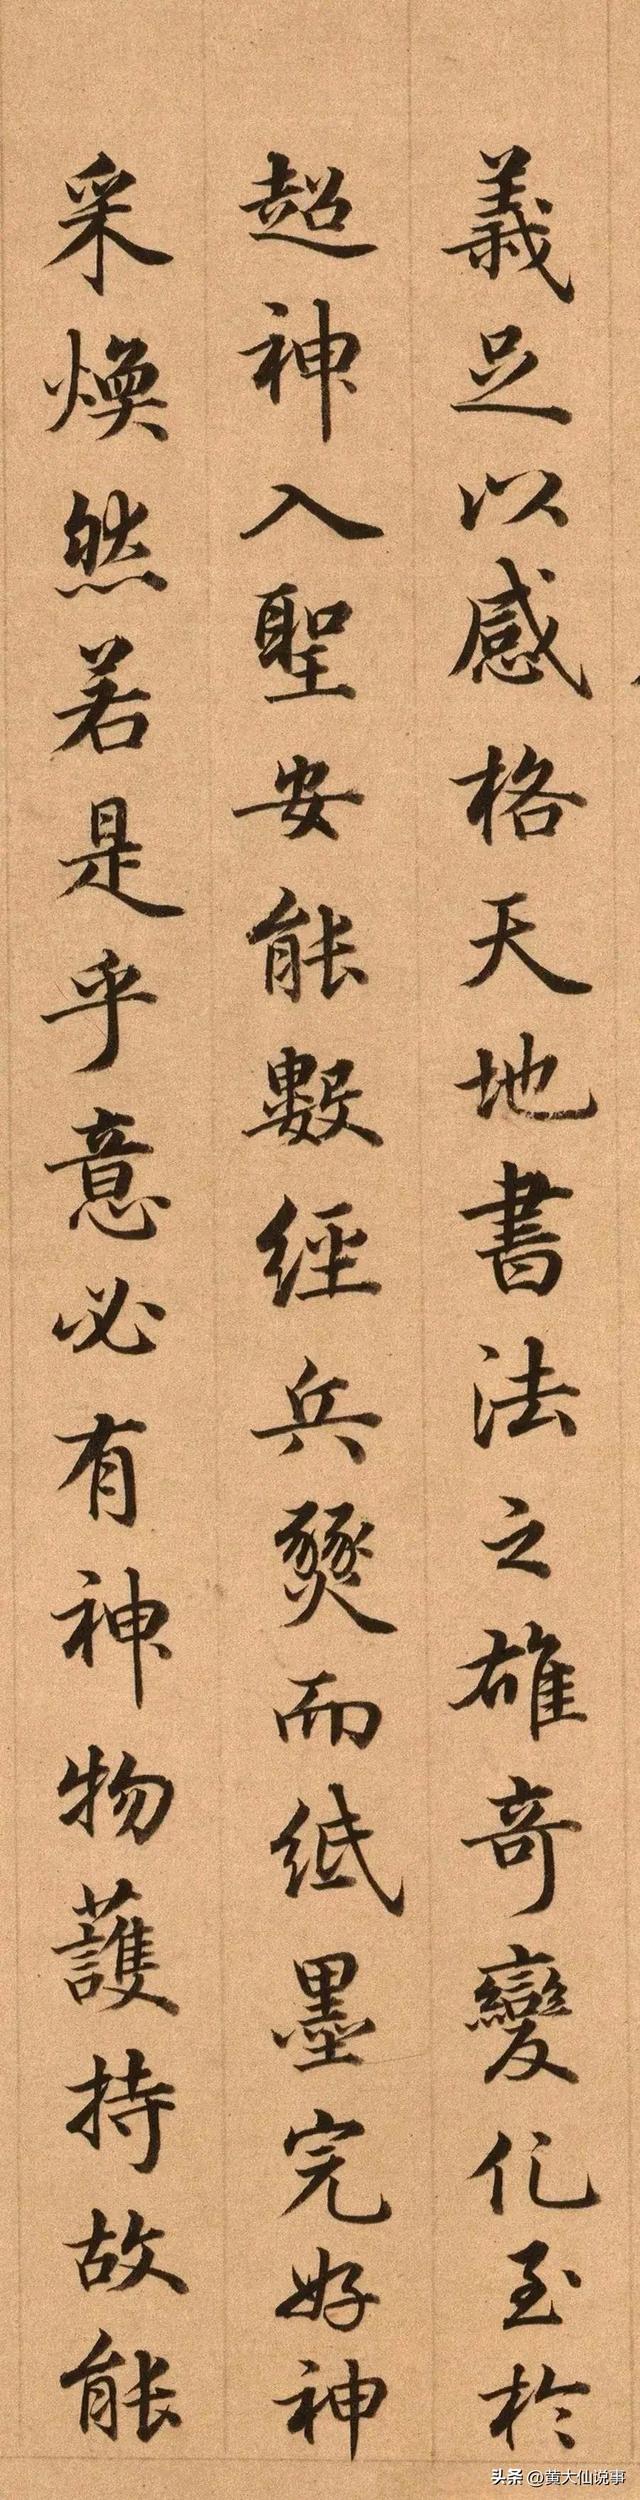 義足以感格天地書法之雄奇變化至於
超神入聖安能數經兵燹而紙墨完好神
采煥然若是乎意必有神物護持故能
头条 @黄大仙说事